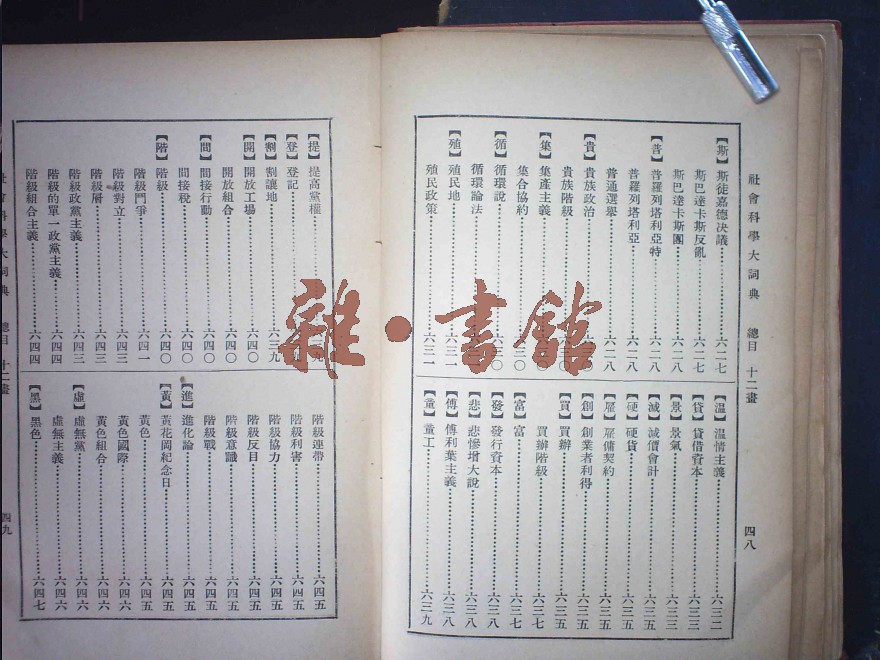 社會科學大詞典 總目 十二畫 四八
【斯】斯徒嘉德決議 六二七
斯巴達卡斯反亂 六二七
斯巴達卡斯團 六二八
【普】普羅列塔利亞特 六二八
普羅列塔利亞 六二八
普通選舉 六二八
【貴】貴族政治
貴族階級
【集】集產主義
集合協約
【循】循環說
循環論法
【殖】殖民地 六三一
殖民政策 六三一
【溫】溫情主義 六三二
【貸】貸借資本 六三三
【景】景氣 六三三
【減】減價會計 六三五
【硬】硬貨 六三五
【雇】雇傭契約 六三五
【創】創業者利得 六三五
【買】買辦 六三五
買辦階級 六三七
【富】富 六三七
【發】發行資本 六三八
【悲】悲慘增大說 六三八
【傅】傅利葉主義 六三八
【童】童工 六三九
【提】提高黨權
【登】登記
【割】割讓地 六三九
【開】開放工場 六四〇
開放組合 六四〇
【間】間接行動 六四〇
間接稅 六四〇
【階】階級 六四〇
階級鬥爭 六四一
階級對立 六四三
階級層 六四三
階級政黨主義 六四三
階級的單一政黨主義 六四四
階級組合主義 六四四
階級連帶 六四五
階級利害 六四五
階級協力 六四五
階級意識 六四五
階級反目 六四五
階級戰 六四五
【進】進化論 六四五
【黃】黃花岡紀念日 六四五
黃色 六四五
黃色國際 六四六
黃色組合 六四六
【虛】虛無黨 六四六
虛無主義 六四六
【黑】黑色 六四七
社會科學大詞典 總目 十二畫 四九
雜·書館